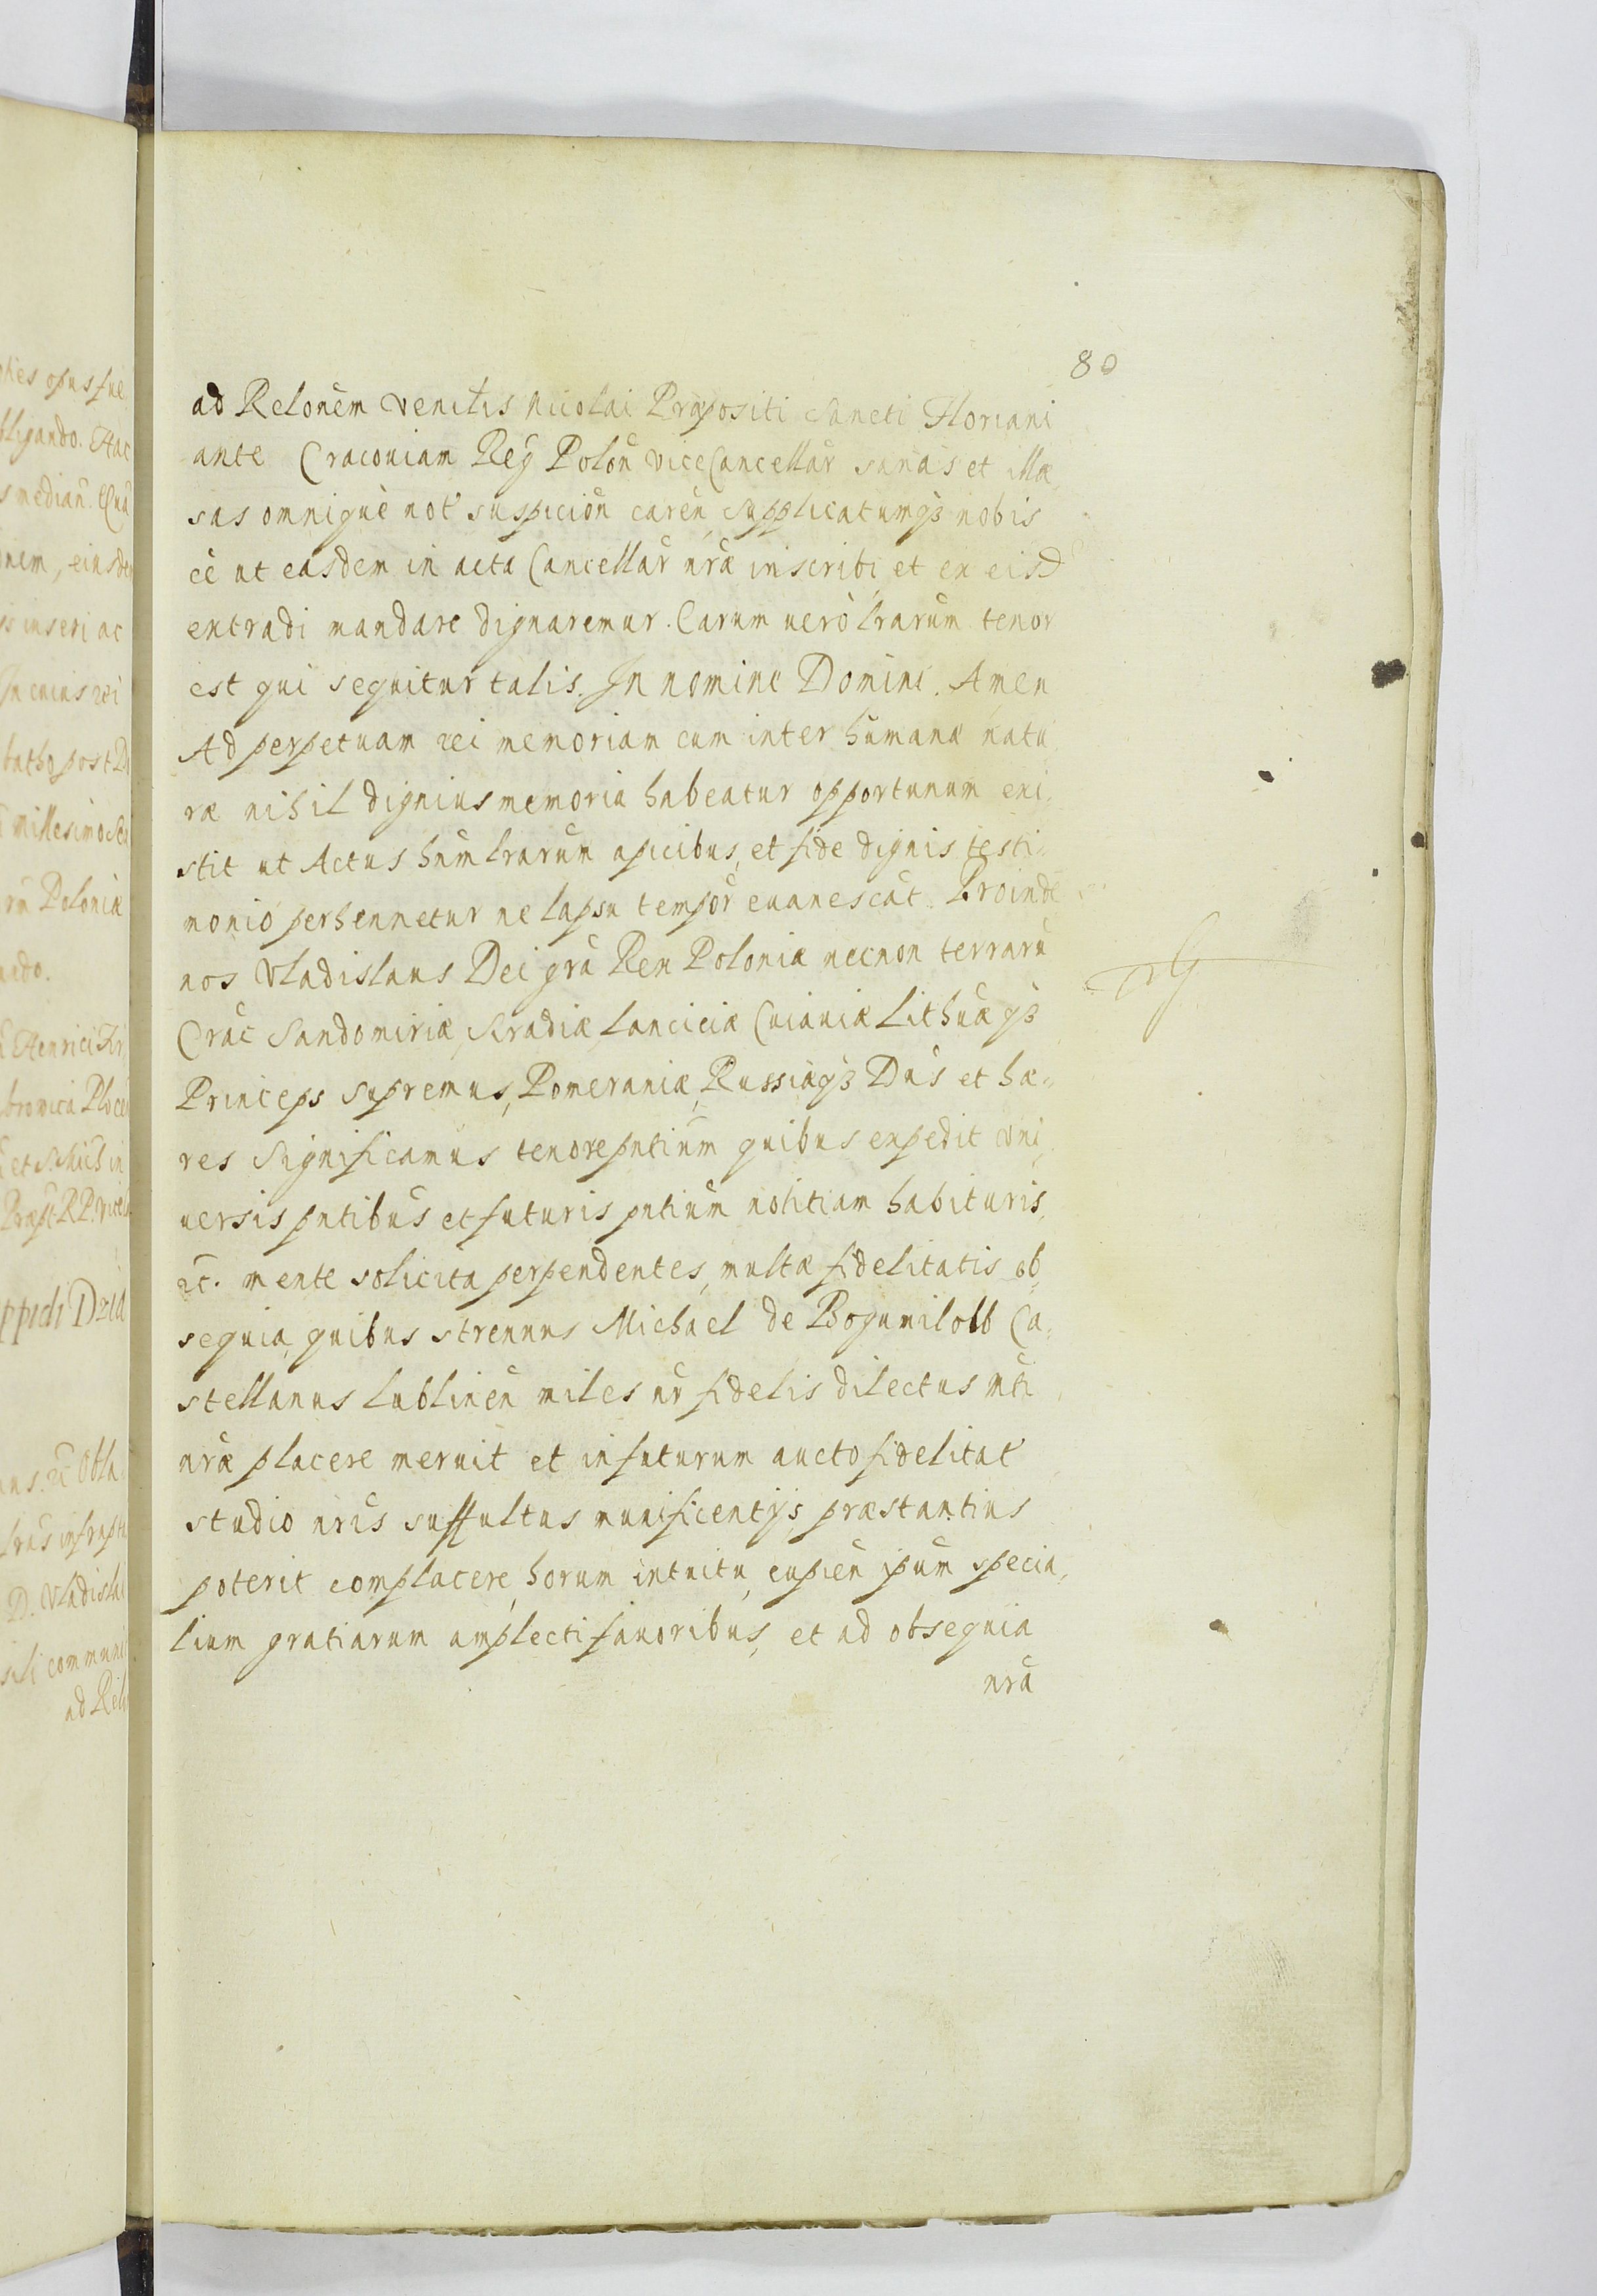 80
ad Relonem Venilis Nicolai Præpositi Sancti Floriani
ante Cracoviam Reg Polon ViceCancellar sanas et illæ
sas omnique not suspicion caren, supplicatumq3 nobis
ēē ut easdem in acta Cancellar nræ inscribi, et ex eisd
extradi mandare dignaremur. Earum uero lrarum tenor
est qui sequitur talis. In nomine Domini. Amen
Ad perpetuam rei memoriam cum inter humanæ natu
ræ nihil dignius memoria habeatur opportunum exi
stit ut Actus hum lrarum apicibus, et fide dignis testi
monio perhennetur ne lapsu tempor euanescat. Proinde
nos Vladislaus Dei gra Rex Poloniæ necnon terraru
Crac Sandomiriæ, Siradiæ, Lanciciæ Cuiaviæ Lithuæq3
Princeps Supremus, Pomeraniæ, Russiæq3 Dns et hæ
res Significamus tenore pntium quibus expedit vni
uersis pntibus et futuris pntium notitiam habituris,
etc. mente solicita perpendentes, multæ fidelitatis ob
sequia, quibus strenuus Michael de Bogumilobb Ca
stellanus Lublinen miles nr fidelis dilectus Mti
nræ placere meruit et in futurum aucto fidelitat
studio nris suffultus munificentijs, præstantius
poterit complacere, horum intuitu, cupien ipum specia
lium gratiarum amplecti fauoribus, et ad obsequia
nra